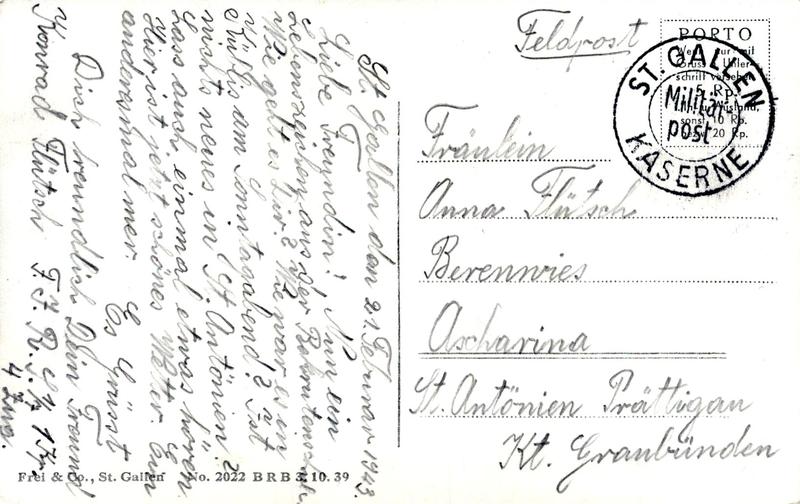 St. Gallen den 21. Februar 1943.
Liebe Freundin! Nun ein
Lebenszeichen aus der Rekrutenschule
Wie geht es Dir? Wie war es in
Küblis am Sonntagabend? Ist
nichts neues in St. Antönien?
Lass auch einmal etwas hören.
Hier ist jetzt schönes Wetter. Ein
andersmal mer. Es Grüsst
Dich freundlich Dein Freund
Konrad Flütsch
4 Zug.
Feldpost
PORTO
Wenn nur mit
Gruss u. Unter-
schrift versehen
5 Rp.
Ausland,
sonst 10 Rp.
20 Rp.
ST. GALLEN
Militär
post
KASERNE
Fräulein
Anna Flütsch
Berenwies
Ascharina
St. Antönien Prättigau
Kt. Graubünden
Frei & Co., St. Gallen No. 2022 B R B 3. 10. 39